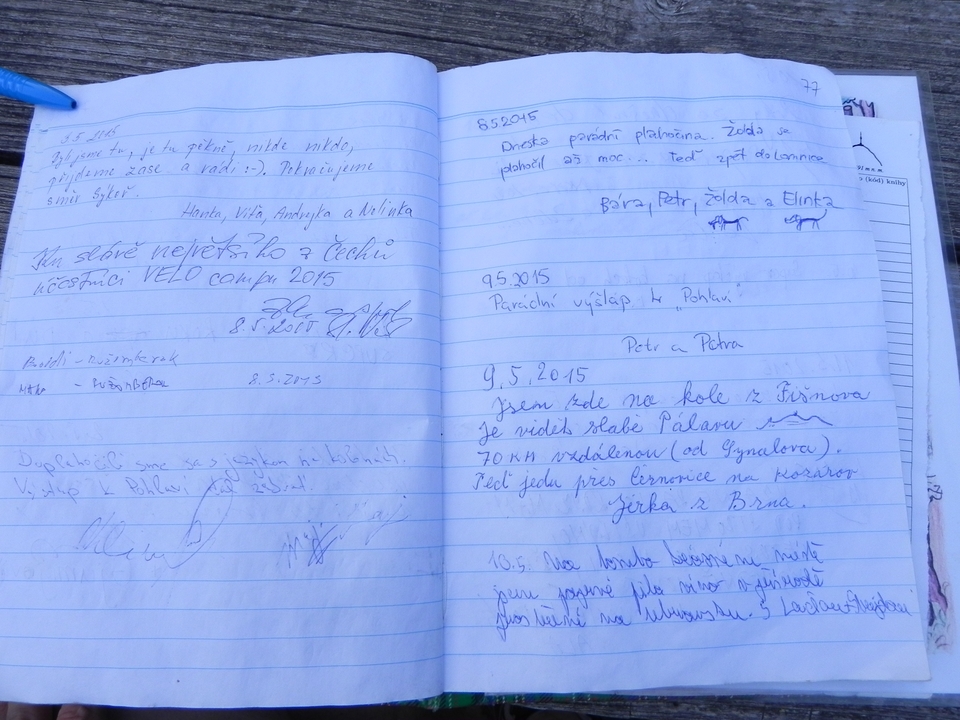 8.5.2015
Byli jsme tu, je tu pěkně, nikde nikdo,
přijdeme zase a rádi :-). Pokračujeme
směr Sýkoř.
Hanka, Víťa, Andrejka a Nelinka
Ku slávě největšího z Čechů
účastníci VELO campu 2015
8.5.2015
8.5.2015
Doplahočili sme sa s jazykom na kolenách.
Výstup k Pohlavi
77
8.5.2015
Dneska parádní plahočina. Žolda se
plahočil až moc... Teď zpět do Lomnice
Bára, Petr, Žolda a Elinka
9.5.2015
Parádní výšlap k „Pohlaví"
Petr a Petra
9.5.2015
Jsem zde na kole z Tišnova
Je vidět slabě Pálavu
70 KM vzdálenou (od Synalova).
Teď jedu přes Černovice na Kozárov
Jirka z Brna.
10.5. Na tomto krásném místě
jsem poprvé pila víno v přírodě